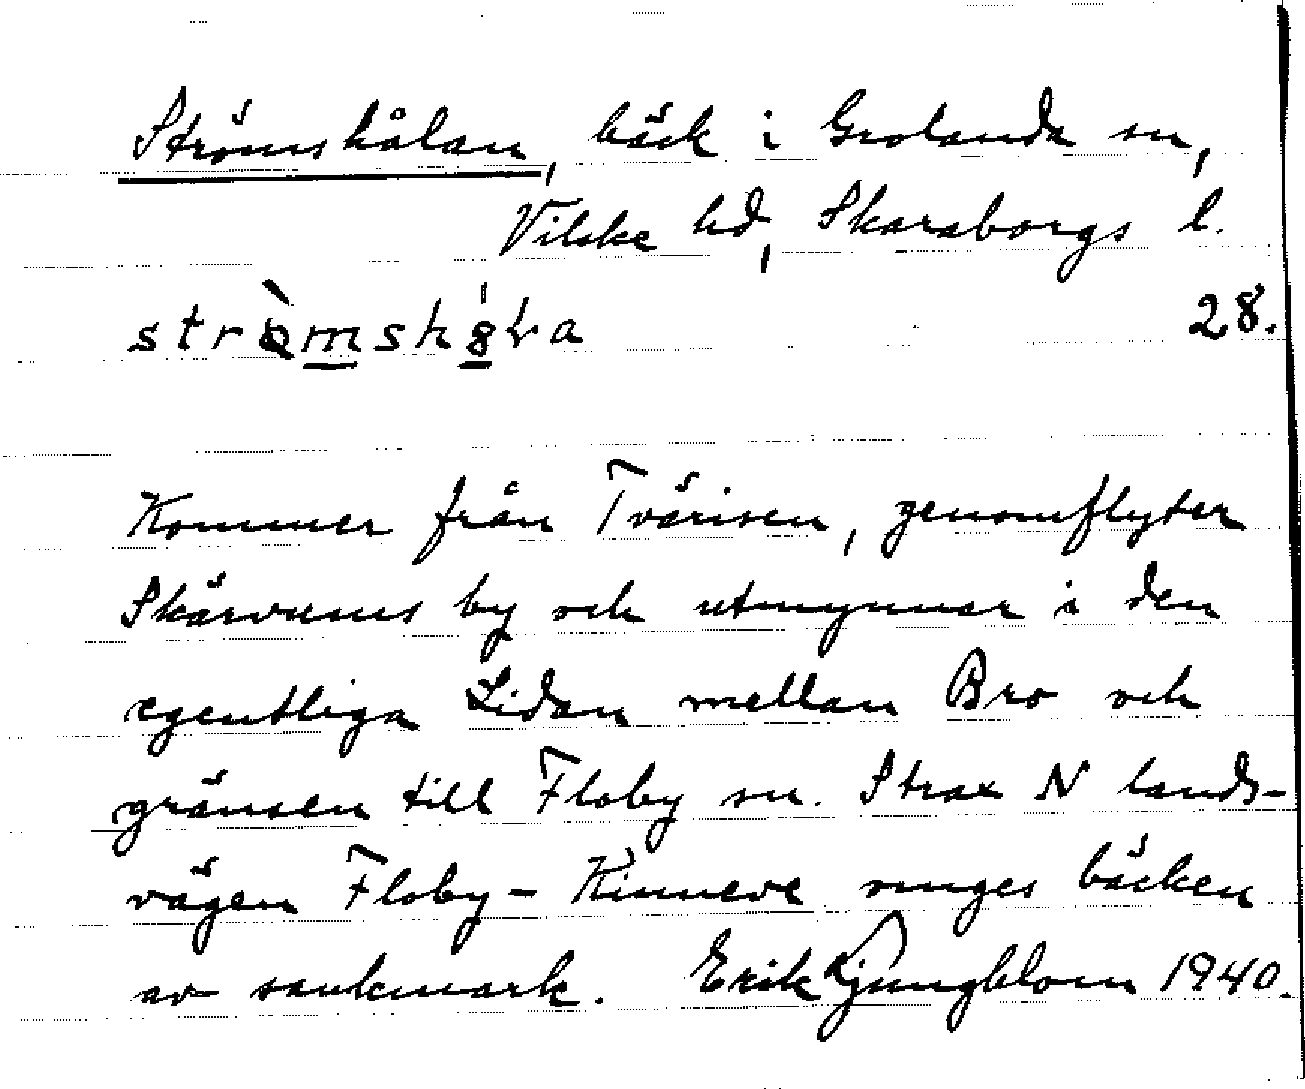 Strömshålan, bäck i Grolanda sn,
Vilske hd, Skaraborgs l.
28.
Kommer från Tvärisen, genomflyter
Skärvums by och utmynnar i den
egentliga Lidan mellan Bro och
gränsen till Floby sn. Strax N lands-
vägen Floby - Kinneve omges bäcken
av sankmark. Erik Ljungblom 1940.